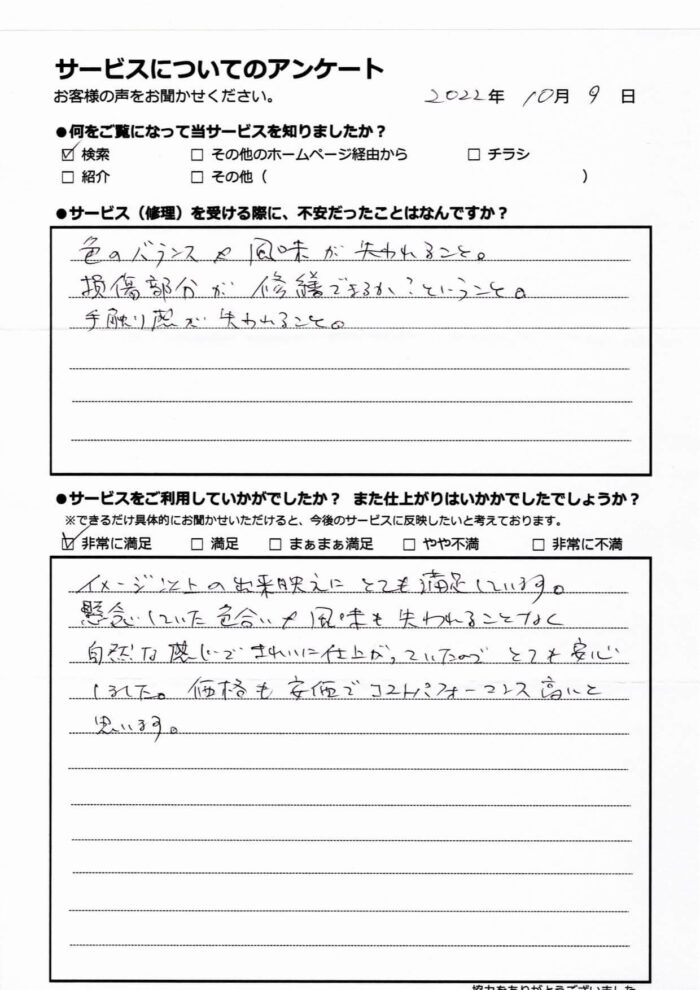 サービスについてのアンケート
お客様の声をお聞かせください。
2022年 10月 9日
●何をご覧になって当サービスを知りましたか？
☑ 検索 □ その他のホームページ経由から □ チラシ
□ 紹介 □ その他（ ）
●サービス（修理）を受ける際に、不安だったことはなんですか？
色のバランスや風味が失われること。
損傷部分が修繕できるか？ということ。
手触り感が失われること。
●サービスをご利用していかがでしたか？ また仕上がりはいかかでしたでしょうか？
※できるだけ具体的にお聞かせいただけると、今後のサービスに反映したいと考えております。
☑ 非常に満足 □ 満足 □ まぁまぁ満足 □ やや不満 □ 非常に不満
イメージ以上の出来映えにとても満足しています。
懸念していた色合いや風味も失われることなく
自然な感じできれいに仕上がっていたのでとても安心
しました。価格も安価でコストパフォーマンス高いと
思います。
協力をありがとうございました